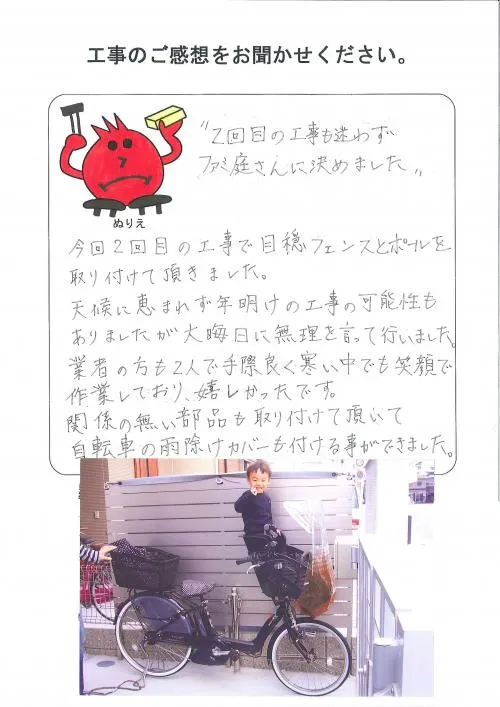 工事のご感想をお聞かせください。
"2回目の工事も迷わず
ファミ庭さんに決めました"
ぬりえ
今回2回目の工事で目穏フェンスとポールを
取り付けて頂きました。
天候に恵まれず年明けの工事の可能性も
ありましたが大晦日に無理を言って行いました。
業者の方も2人で手際良く寒い中でも笑顔で
作業しており、嬉しかったです。
関係の無い部品も取り付けて頂いて
自転車の雨除けカバーも付ける事ができました。